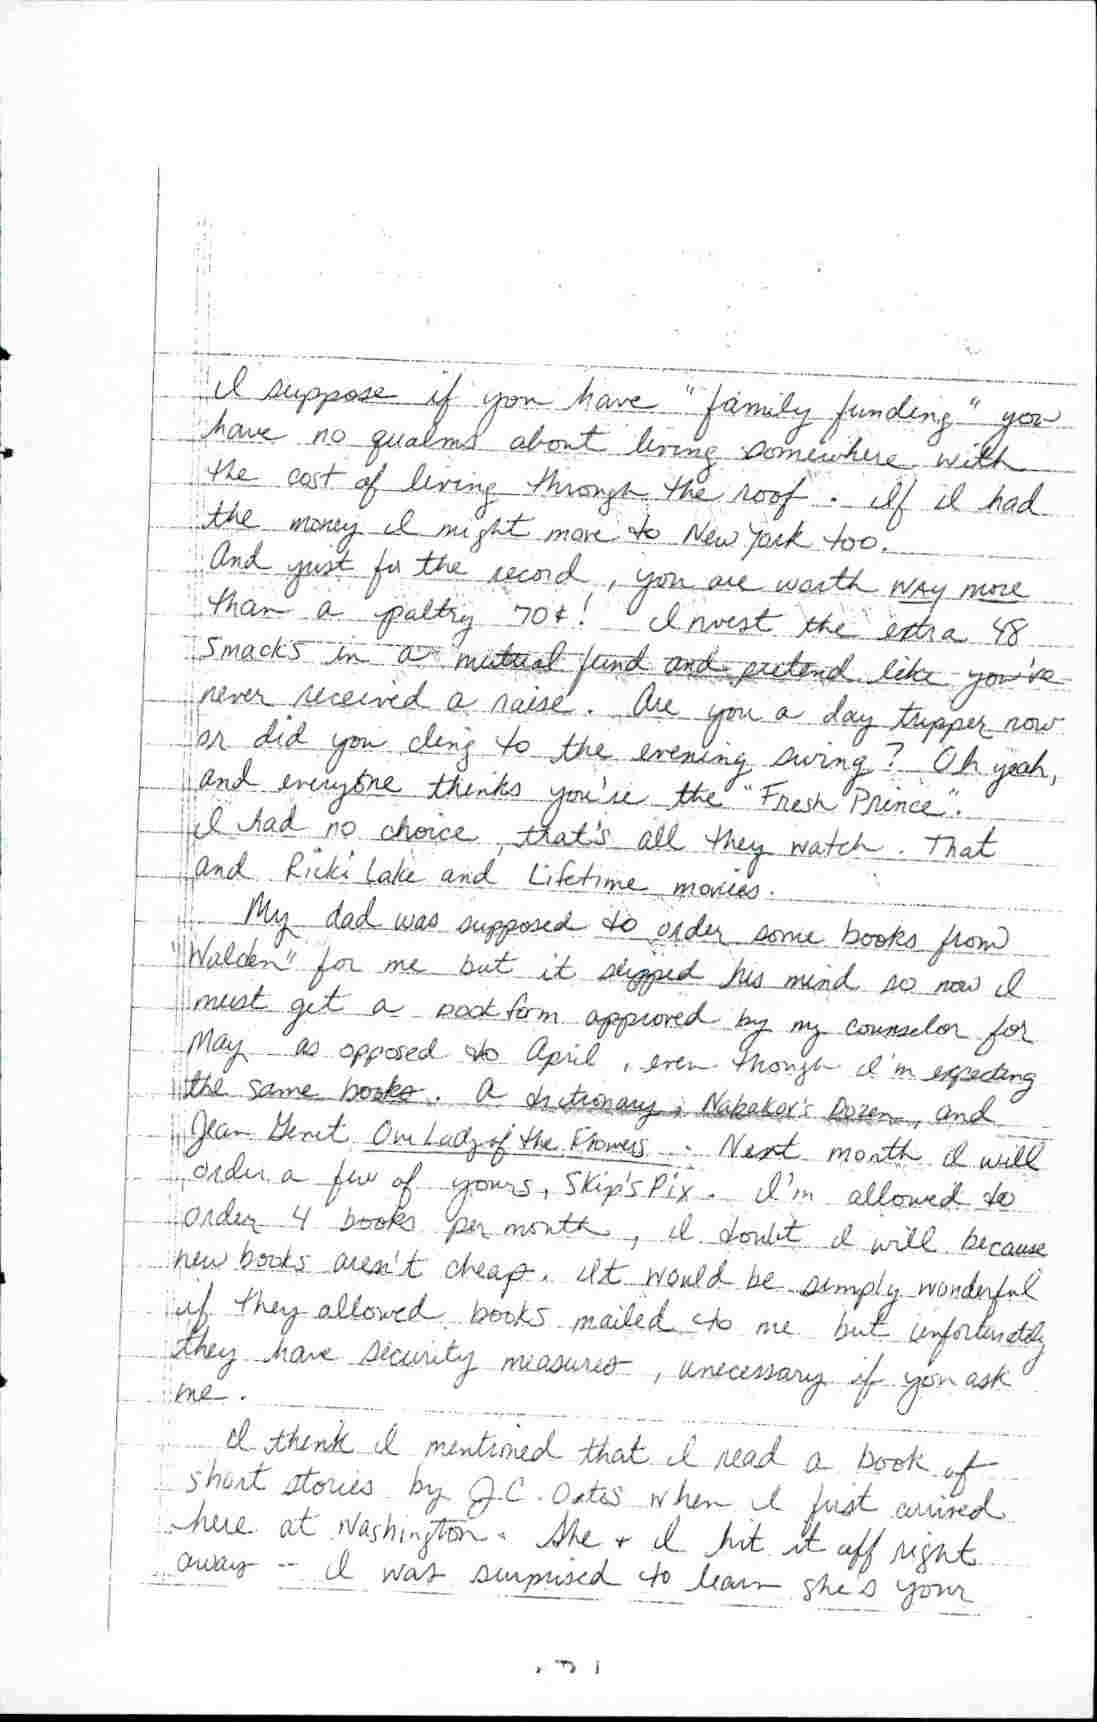 I suppose if you have "family funding" you
have no qualms about living somewhere with
the cost of living through the roof. If I had
the money I might move to New York too.
And just for the record, you are worth WAY more
than a paltry 70¢! Invest the extra 48
smacks in a mutual fund and pretend like you've
never received a raise. Are you a day tripper now
or did you cling to the evening swing? Oh yeah,
and everyone thinks you're the "Fresh Prince".
I had no choice, that's all they watch. That
and Ricki Lake and Lifetime movies.
My dad was supposed to order some books from
"Walden" for me but it slipped his mind so now I
must get a book form approved by my counselor for
May as opposed to April, even though I'm expecting
the same books. A dictionary, Nabakov's Dozen, and
Jean Genet Our Lady of the Flowers. Next month I will
order a few of yours, Skip's Pix. I'm allowed to
order 4 books per month, I doubt I will because
new books aren't cheap. It would be simply wonderful
if they allowed books mailed to me but unfortunately
they have security measures, unecessary if you ask
me.
I think I mentioned that I read a book of
short stories by J.C. Oates when I first arrived
here at Washington. She + I hit it off right
away -- I was surprised to learn she's your